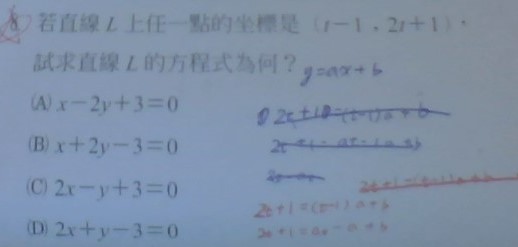 8. 若直線L上任一點的坐標是(t-1,2t+1),
試求直線L的方程式為何?
y=ax+b
(A) x-2y+3=0
(B) x+2y-3=0
(C) 2x-y+3=0
(D) 2x+y-3=0
2t+1=(t-1)a+b
2t+1=at-a+b